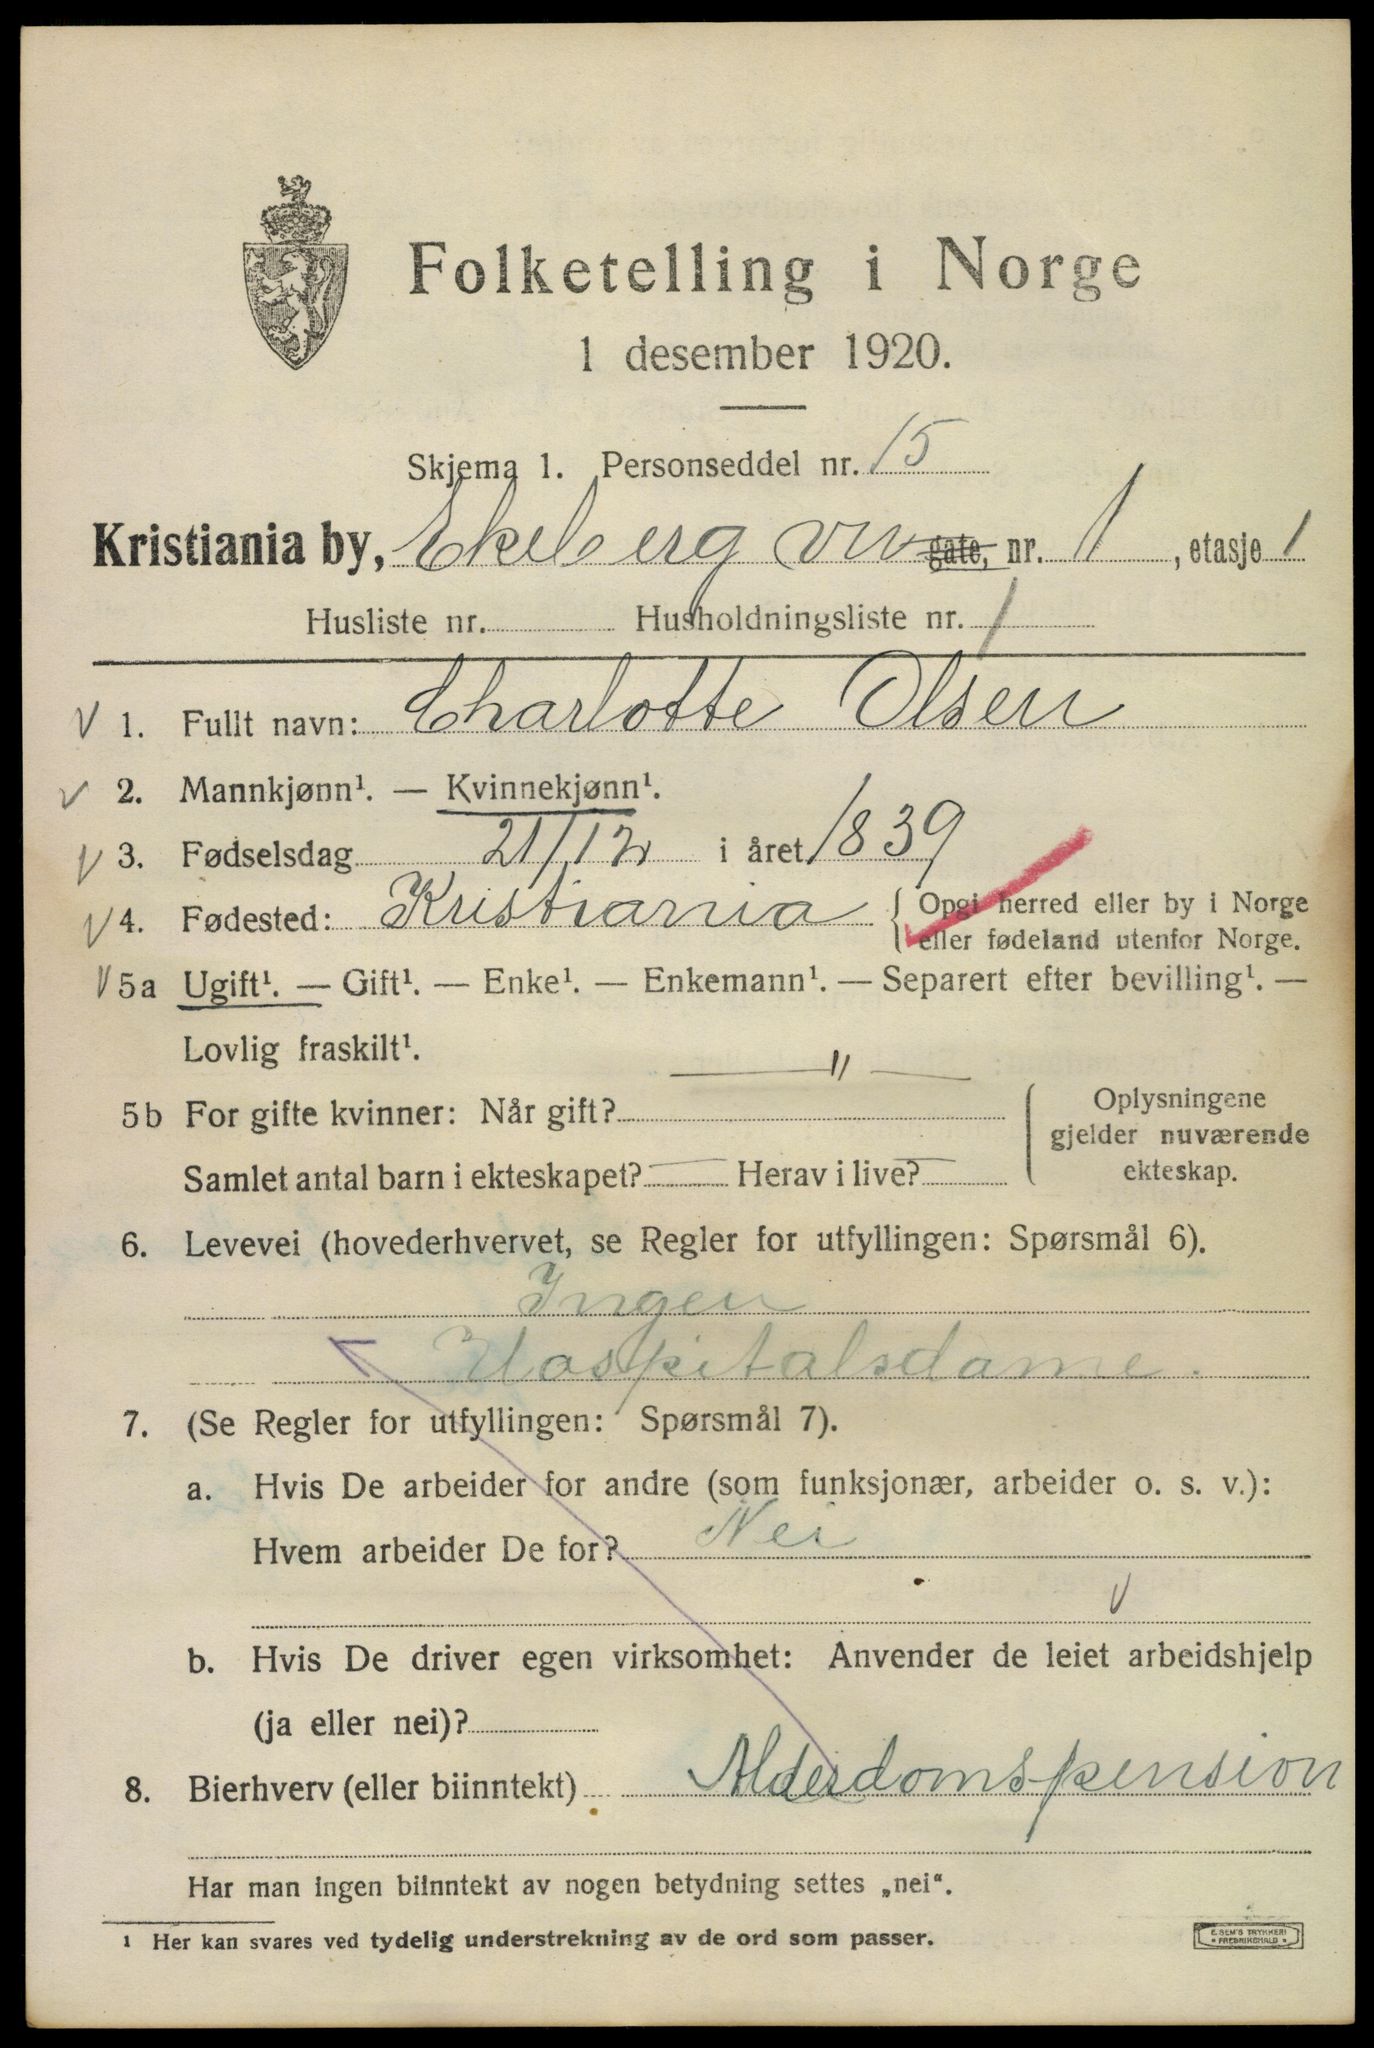 Folketelling i Norge
1 desember 1920.
Skjema 1. Personseddel nr. 15
Kristiania by, Ekeberg vei gate, nr. 1, etasje 1
Husliste nr. Husholdningsliste nr. 1
1. Fullt navn: Charlotte Olsen
2. Mannkjønn¹. — Kvinnekjønn¹.
3. Fødselsdag 21/12 i året 1839
4. Fødested: Kristiania { Opgi herred eller by i Norge
eller fødeland utenfor Norge.
5a Ugift¹. — Gift¹. — Enke¹. — Enkemann¹. — Separert efter bevilling¹. —
Lovlig fraskilt¹.
— " —
5b For gifte kvinner: Når gift?
Samlet antal barn i ekteskapet? — Herav i live? —
Oplysningene
gjelder nuværende
ekteskap.
6. Levevei (hovederhvervet, se Regler for utfyllingen: Spørsmål 6).
Ingen
Hospitalsdame.
7. (Se Regler for utfyllingen: Spørsmål 7).
a. Hvis De arbeider for andre (som funksjonær, arbeider o. s. v.):
Hvem arbeider De for? Nei
b. Hvis De driver egen virksomhet: Anvender de leiet arbeidshjelp
(ja eller nei)?
8. Bierhverv (eller biinntekt) Alderdomspension
Har man ingen biinntekt av nogen betydning settes „nei“.
¹ Her kan svares ved tydelig understrekning av de ord som passer.
E. SEM'S TRYKKERI
• FREDRIKSHALD •